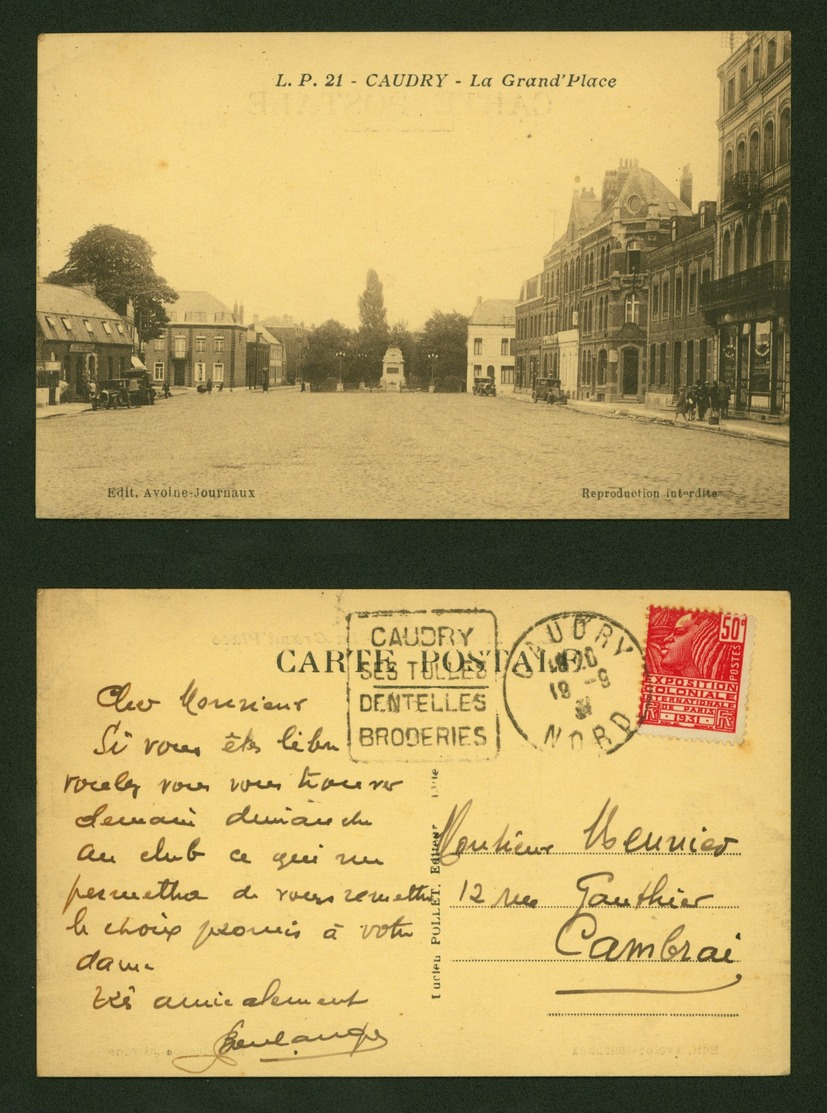 L. P. 21 - CAUDRY - La Grand'Place
Edit. Avoine-Journaux
Reproduction interdite
CARTE POSTALE
CAUDRY
SES TULLES
DENTELLES
BRODERIES
CAUDRY
18-9
NORD
50c
POSTES
EXPOSITION
COLONIALE
INTERNATIONALE
DE PARIS
RF 1931 RF
Cher Monsieur
Si vous êtes libre
voulez vous vous trouver
demain dimanche
au club ce qui me
permettra de vous remettre
le choix promis à votre
dame
Très amicalement
Boulanger
Lucien POLLET, Editeur
Monsieur Meunier
12 rue Gauthier
Cambrai